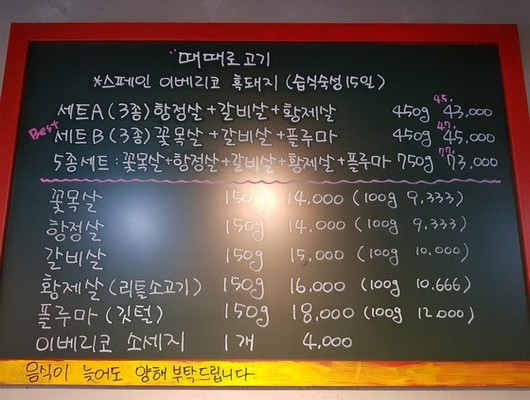 때때로고기
*스페인 이베리코 흑돼지 (습식숙성15일)
세트A (3종) 항정살+갈비살+황제살 450g 45. 43,000
Best 세트B (3종) 꽃목살+갈비살+플루마 450g 47. 45,000
5종세트 : 꽃목살+항정살+갈비살+황제살+플루마 750g 77. 73,000
꽃목살 150g 14,000 (100g 9,333)
항정살 150g 14,000 (100g 9,333)
갈비살 150g 15,000 (100g 10,000)
황제살 (리틀소고기) 150g 16,000 (100g 10.666)
플루마 (깃털) 150g 18,000 (100g 12.000)
이베리코 소세지 1개 4,000
음식이 늦어도 양해 부탁드립니다.